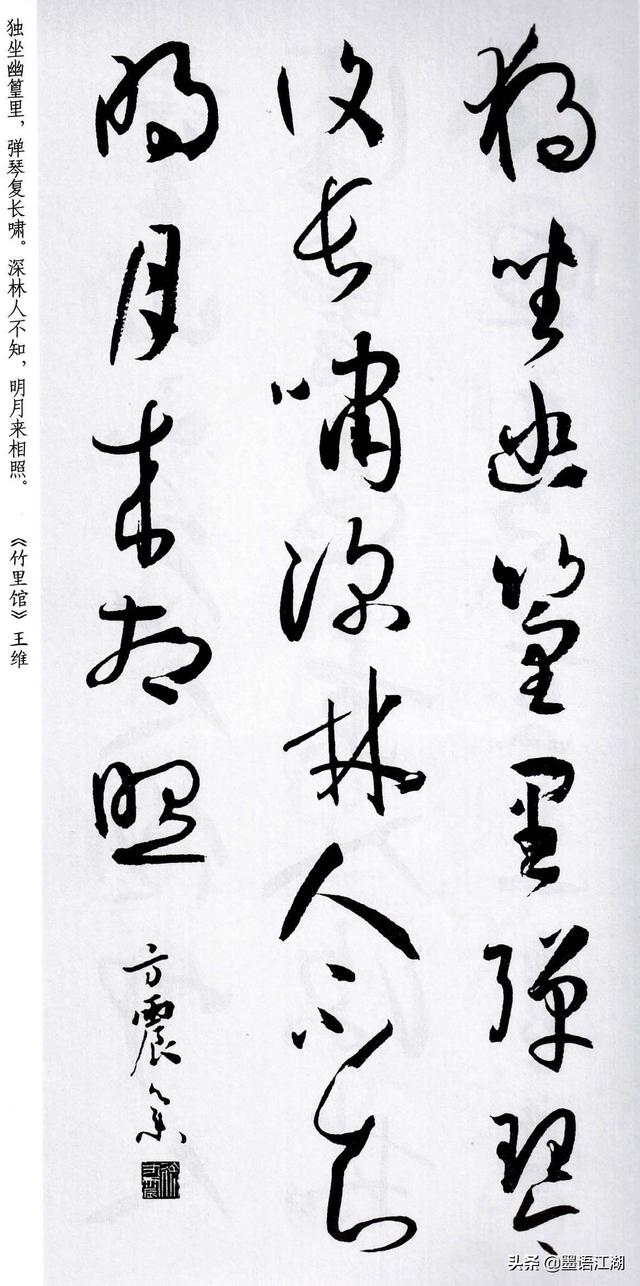 獨坐幽篁里彈琴
復長嘯深林人不知
明月來相照
方震
独坐幽篁里，弹琴复长啸。深林人不知，明月来相照。 《竹里馆》王维
头条 @墨语江湖